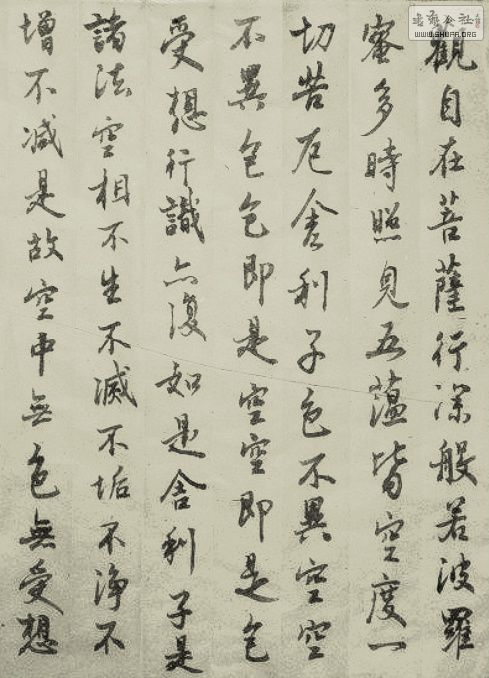 觀自在菩薩行深般若波羅
蜜多時照見五蘊皆空度一
切苦厄舍利子色不異空空
不異色色即是空空即是色
受想行識亦復如是舍利子是
諸法空相不生不滅不垢不淨不
增不減是故空中無色無受想
WWW.SHUFA.ORG